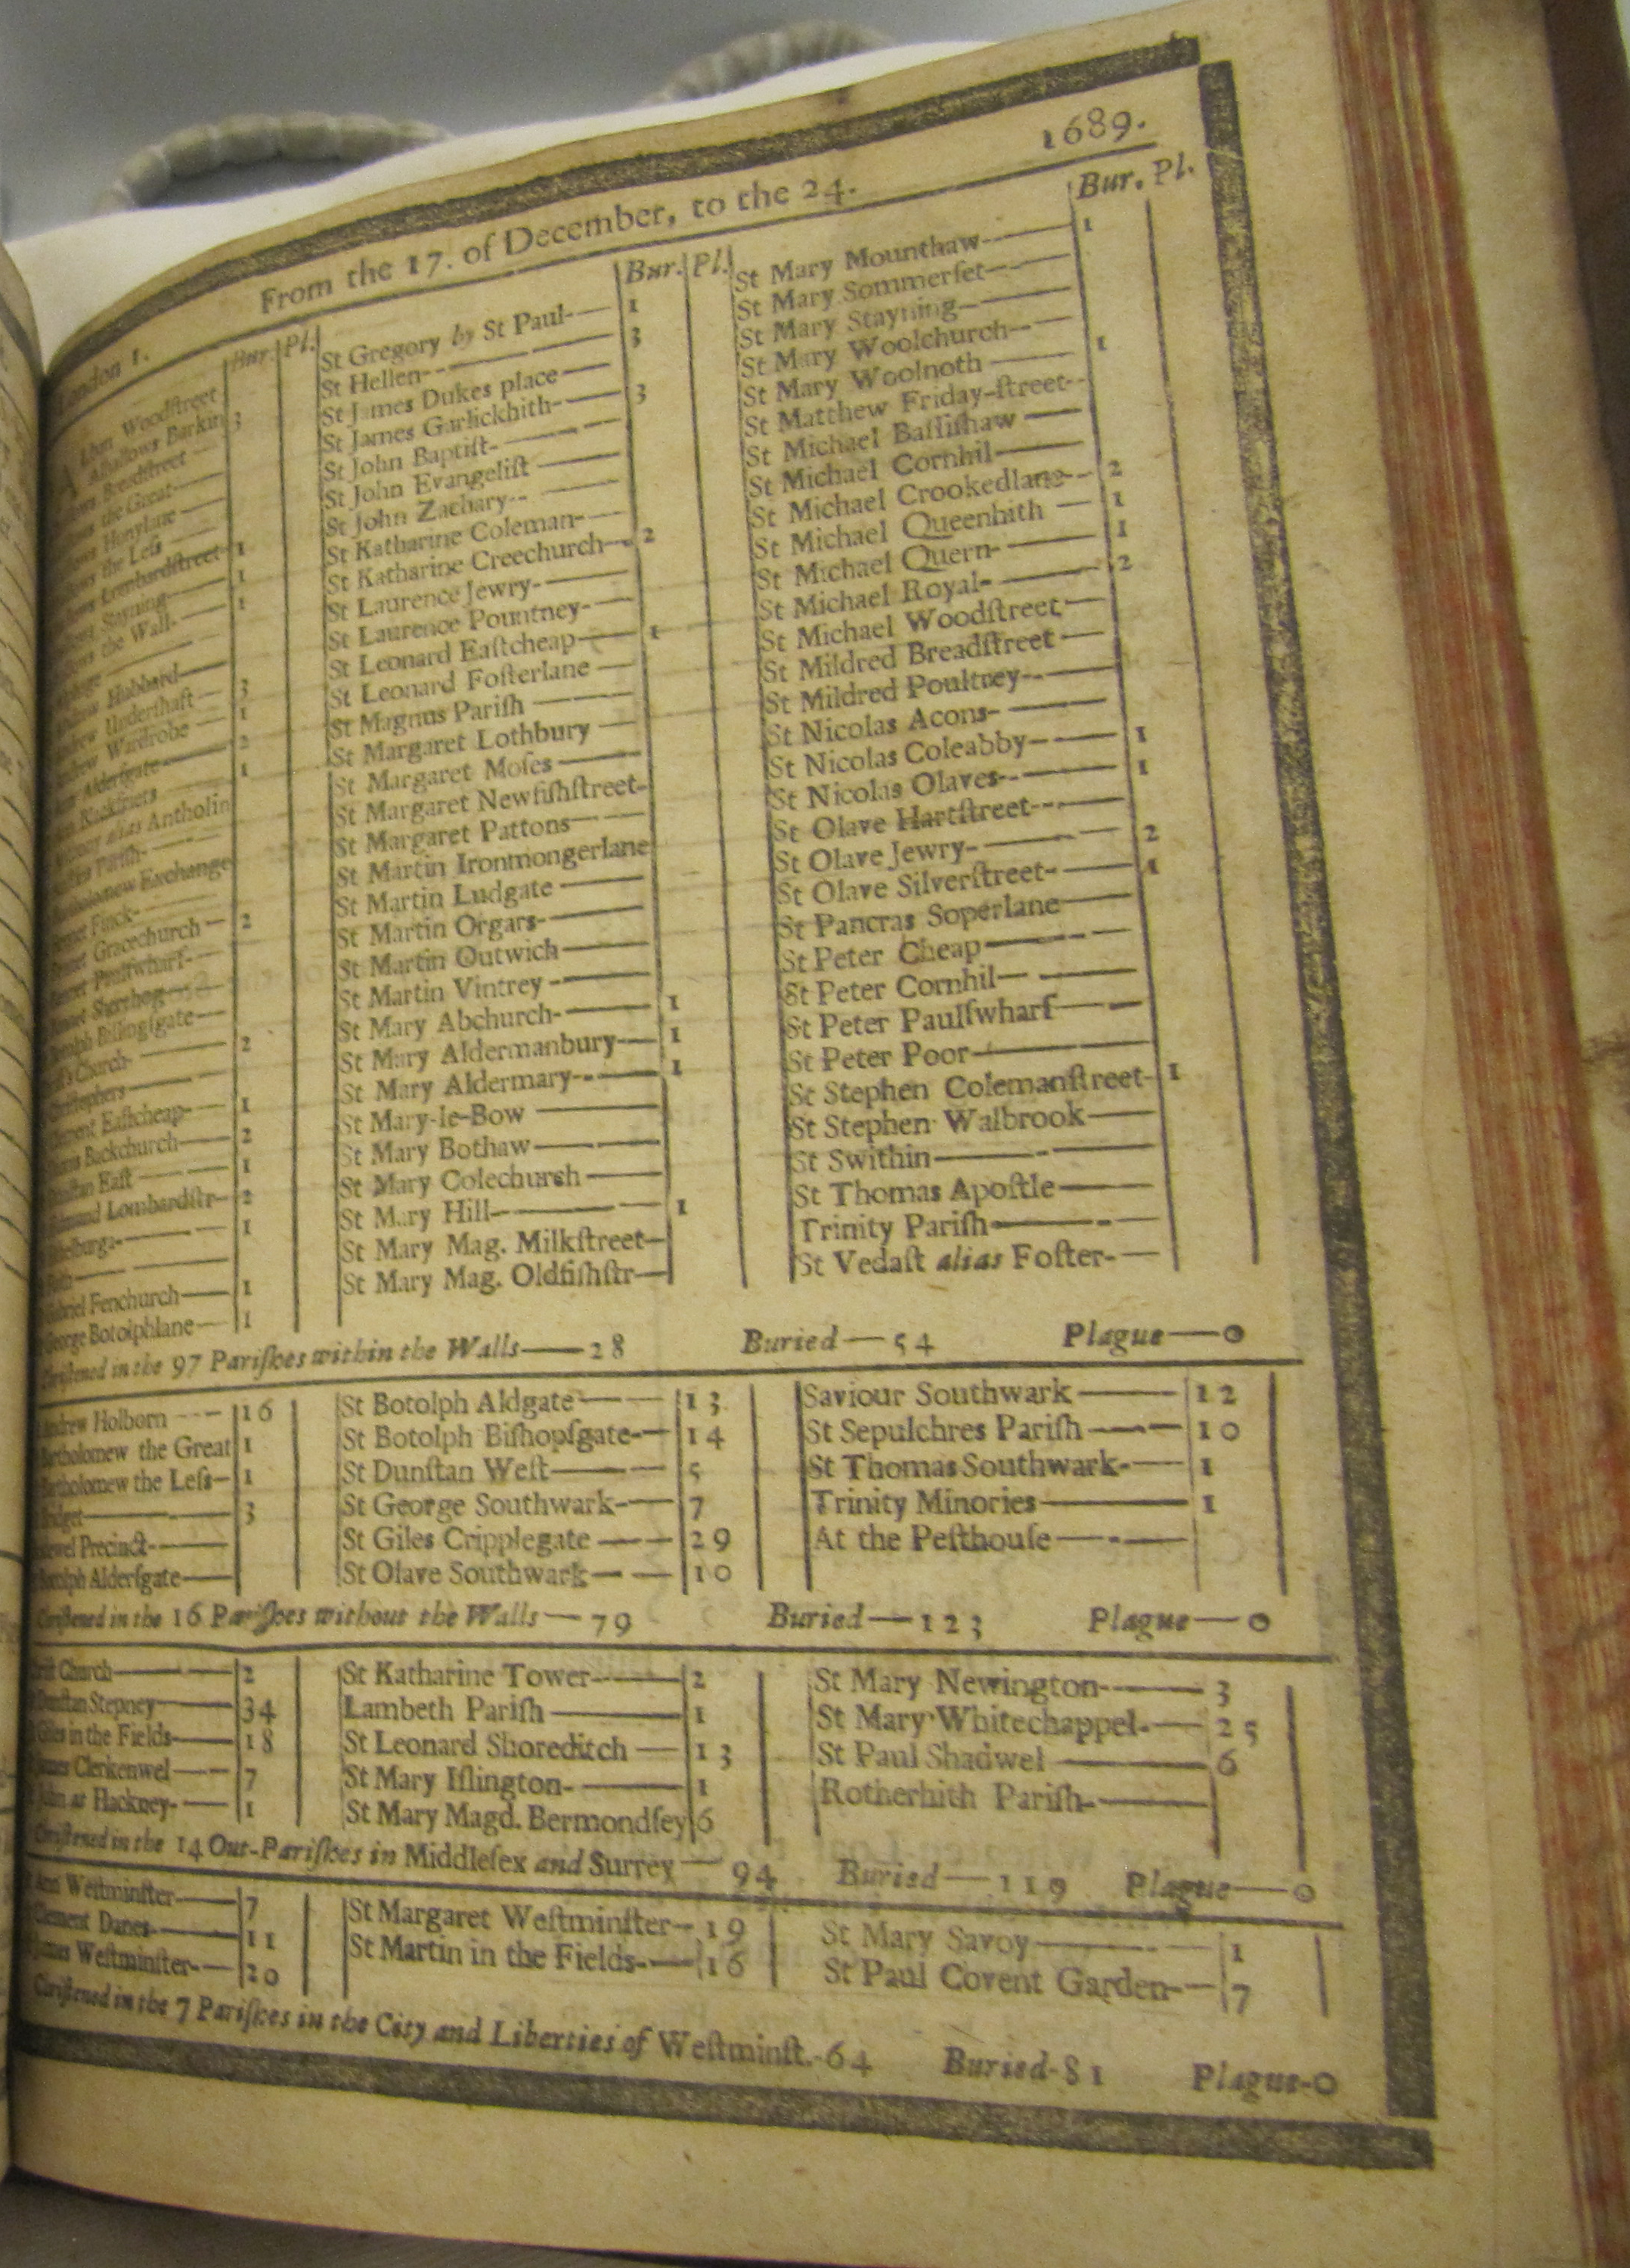 London 1. From the 17. of December, to the 24. 1689.
Bur. Pl.
Woodſtreet
Alhallows Barkin 3
Breadſtreet
the Great
Honylane
the Leſs
Lombardſtreet 1
Stayning 1
the Wall 1
Hubbard
Underſhaft 3
Wardrobe 1
Alderſgate 2
1
alias Antholin
Pariſh
Exchange
Finck
Gracechurch 2
Paulſwharf
Sherehog
Billingſgate
Church 2
Eaſtcheap 1
Backchurch 2
Eaſt 1
Lombardſtr 2
1
Fenchurch 1
George Botolphlane 1
Bur. Pl.
St Gregory by St Paul 1
St Hellen 3
St James Dukes place
St James Garlickhith 3
St John Baptiſt
St John Evangeliſt
St John Zachary
St Katharine Coleman
St Katharine Creechurch 2
St Laurence Jewry
St Laurence Pountney
St Leonard Eaſtcheap 1
St Leonard Foſterlane
St Magnus Pariſh
St Margaret Lothbury
St Margaret Moſes
St Margaret Newfiſhſtreet
St Margaret Pattons
St Martin Ironmongerlane
St Martin Ludgate
St Martin Orgars
St Martin Outwich
St Martin Vintrey
St Mary Abchurch 1
St Mary Aldermanbury 1
St Mary Aldermary 1
St Mary-le-Bow
St Mary Bothaw
St Mary Colechurch
St Mary Hill 1
St Mary Mag. Milkſtreet
St Mary Mag. Oldfiſhſtr
Bur. Pl.
St Mary Mounthaw 1
St Mary Sommerſet
St Mary Stayning
St Mary Woolchurch
St Mary Woolnoth 1
St Matthew Friday-ſtreet
St Michael Baſſiſhaw
St Michael Cornhil
St Michael Crookedlane 2
St Michael Queenhith 1
St Michael Quern 1
St Michael Royal 2
St Michael Woodſtreet
St Mildred Breadſtreet
St Mildred Poultrey
St Nicolas Acons
St Nicolas Coleabby 1
St Nicolas Olaves 1
St Olave Hartſtreet
St Olave Jewry 2
St Olave Silverſtreet 1
St Pancras Soperlane
St Peter Cheap
St Peter Cornhil
St Peter Paulſwharf
St Peter Poor
St Stephen Colemanſtreet 1
St Stephen Walbrook
St Swithin
St Thomas Apoſtle
Trinity Pariſh
St Vedaſt alias Foſter
Chriſtened in the 97 Pariſhes within the Walls—28 Buried—54 Plague—0
Andrew Holborn 16
Bartholomew the Great 1
Bartholomew the Leſs 1
Bridget 3
Precinct
Botolph Alderſgate
St Botolph Aldgate 13
St Botolph Biſhopſgate 14
St Dunſtan Weſt 5
St George Southwark 7
St Giles Cripplegate 29
St Olave Southwark 10
Saviour Southwark 12
St Sepulchres Pariſh 10
St Thomas Southwark 1
Trinity Minories 1
At the Peſthouſe
Chriſtened in the 16 Pariſhes without the Walls—79 Buried—123 Plague—0
Church 2
Dunſtan Stepney 34
Giles in the Fields 18
James Clerkenwel 7
John at Hackney 1
St Katharine Tower 2
Lambeth Pariſh 1
St Leonard Shoreditch 13
St Mary Iſlington 1
St Mary Magd. Bermondſey 6
St Mary Newington 3
St Mary Whitechappel 25
St Paul Shadwel 6
Rotherhith Pariſh
Chriſtened in the 14 Out-Pariſhes in Middleſex and Surrey—94 Buried—119 Plague—0
Ann Weſtminſter 7
Clement Danes 11
James Weſtminſter 20
St Margaret Weſtminſter 19
St Martin in the Fields 16
St Mary Savoy 1
St Paul Covent Garden 7
Chriſtened in the 7 Pariſhes in the City and Liberties of Weſtminſt.-64 Buried-81 Plague-0